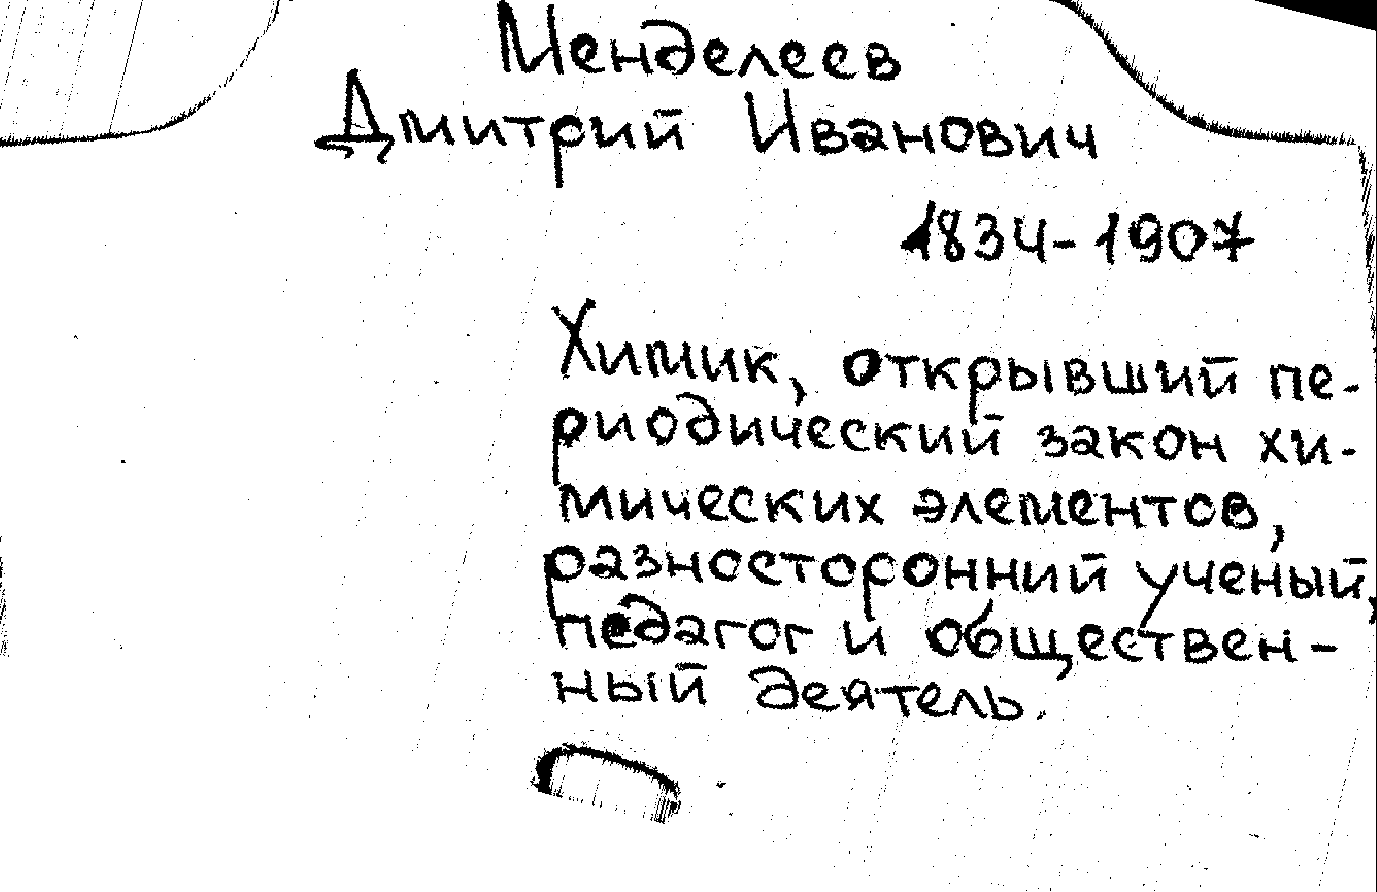 Менделеев
Дмитрий Иванович
1834-1907
Химик, открывший пе-
риодический закон хи-
мических элементов,
разносторонний ученый,
педагог и обществен-
ный деятель.